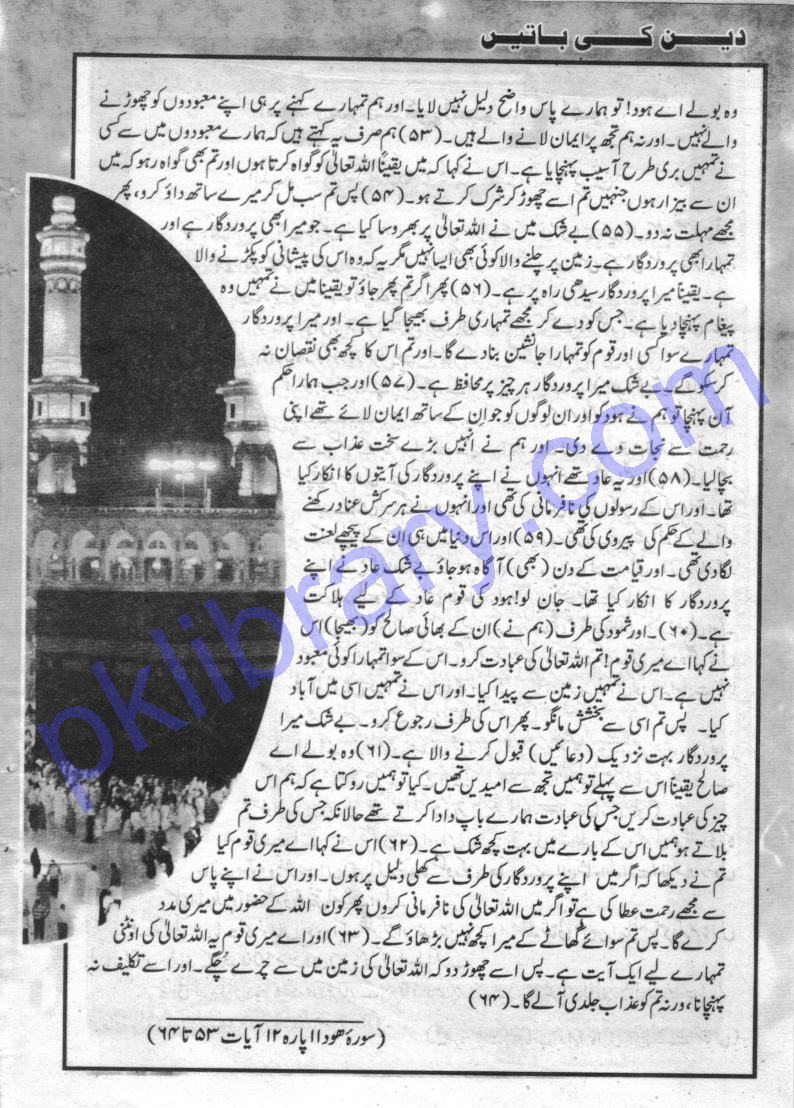 دین کی باتیں
وہ بولے اے ہود! تو ہمارے پاس واضح دلیل نہیں لایا۔ اور ہم تمہارے کہنے پر ہی اپنے معبودوں کو چھوڑنے
والے نہیں۔ اور نہ ہم تجھ پر ایمان لانے والے ہیں۔ (۵۳) ہم صرف یہ کہتے ہیں کہ ہمارے معبودوں میں سے کسی
نے تمہیں بری طرح آسیب پہنچایا ہے۔ اس نے کہا کہ میں یقیناً اللہ تعالیٰ کو گواہ کرتا ہوں اور تم بھی گواہ رہو کہ میں
ان سے بیزار ہوں جنہیں تم اسے چھوڑ کر شرک کرتے ہو۔ (۵۴) پس تم سب مل کر میرے ساتھ داؤ کرو، پھر
مجھے مہلت نہ دو۔ (۵۵) بے شک میں نے اللہ تعالیٰ پر بھروسا کیا ہے۔ جو میرا بھی پروردگار ہے اور
تمہارا بھی پروردگار ہے۔ زمین پر چلنے والا کوئی بھی ایسا نہیں مگر یہ کہ وہ اس کی پیشانی کو پکڑنے والا
ہے۔ یقیناً میرا پروردگار سیدھی راہ پر ہے۔ (۵۶) پھر اگر تم پھر جاؤ تو یقیناً میں نے تمہیں وہ
پیغام پہنچا دیا ہے۔ جس کو دے کر مجھے تمہاری طرف بھیجا گیا ہے۔ اور میرا پروردگار
تمہارے سوا کسی اور قوم کو تمہارا جانشین بنا دے گا۔ اور تم اس کا کچھ بھی نقصان نہ
کر سکو گے۔ بے شک میرا پروردگار ہر چیز پر محافظ ہے۔ (۵۷) اور جب ہمارا حکم
آن پہنچا تو ہم نے ہود کو اور ان لوگوں کو جو ان کے ساتھ ایمان لائے تھے اپنی
رحمت سے نجات دے دی۔ اور ہم نے انہیں بڑے سخت عذاب سے
بچا لیا۔ (۵۸) اور یہ عاد تھے انہوں نے اپنے پروردگار کی آیتوں کا انکار کیا
تھا۔ اور اس کے رسولوں کی نافرمانی کی تھی اور انہوں نے ہر سرکش عناد رکھنے
والے کے حکم کی پیروی کی تھی۔ (۵۹) اور اس دنیا میں ہی ان کے پیچھے لعنت
لگا دی تھی۔ اور قیامت کے دن (بھی) آگاہ ہو جاؤ بے شک عاد نے اپنے
پروردگار کا انکار کیا تھا۔ جان لو! ہود کی قوم عاد کے لیے ہلاکت
ہے۔ (۶۰)۔ اور ثمود کی طرف (ہم نے) ان کے بھائی صالح کو (بھیجا) اس
نے کہا اے میری قوم! تم اللہ تعالیٰ کی عبادت کرو۔ اس کے سوا تمہارا کوئی معبود
نہیں ہے۔ اس نے تمہیں زمین سے پیدا کیا۔ اور اس نے تمہیں اسی میں آباد
کیا۔ پس تم اسی سے بخشش مانگو۔ پھر اس کی طرف رجوع کرو۔ بے شک میرا
پروردگار بہت نزدیک (دعائیں) قبول کرنے والا ہے۔ (۶۱) وہ بولے اے
صالح یقیناً اس سے پہلے تو ہمیں تجھ سے امیدیں تھیں۔ کیا تو ہمیں روکتا ہے کہ ہم اس
چیز کی عبادت کریں جس کی عبادت ہمارے باپ دادا کرتے تھے حالانکہ جس کی طرف تم
بلاتے ہو ہمیں اس کے بارے میں بہت کچھ شک ہے۔ (۶۲) اس نے کہا اے میری قوم کیا
تم نے دیکھا کہ اگر میں اپنے پروردگار کی طرف سے کھلی دلیل پر ہوں۔ اور اس نے اپنے پاس
سے مجھے رحمت عطا کی ہے تو اگر میں اللہ تعالیٰ کی نافرمانی کروں پھر کون اللہ کے حضور میں میری مدد
کرے گا۔ پس تم سوائے گھاٹے کے میرا کچھ نہیں بڑھاؤ گے۔ (۶۳) اور اے میری قوم یہ اللہ تعالیٰ کی اونٹنی
تمہارے لیے ایک آیت ہے۔ پس اسے چھوڑ دو کہ اللہ تعالیٰ کی زمین میں سے چرے چگے۔ اور اسے تکلیف نہ
پہنچانا، ورنہ تم کو عذاب جلدی آ لے گا۔ (۶۴)
(سورۂ ھود ۱۱ پارہ ۱۲ آیات ۵۳ تا ۶۴)
pklibrary.com